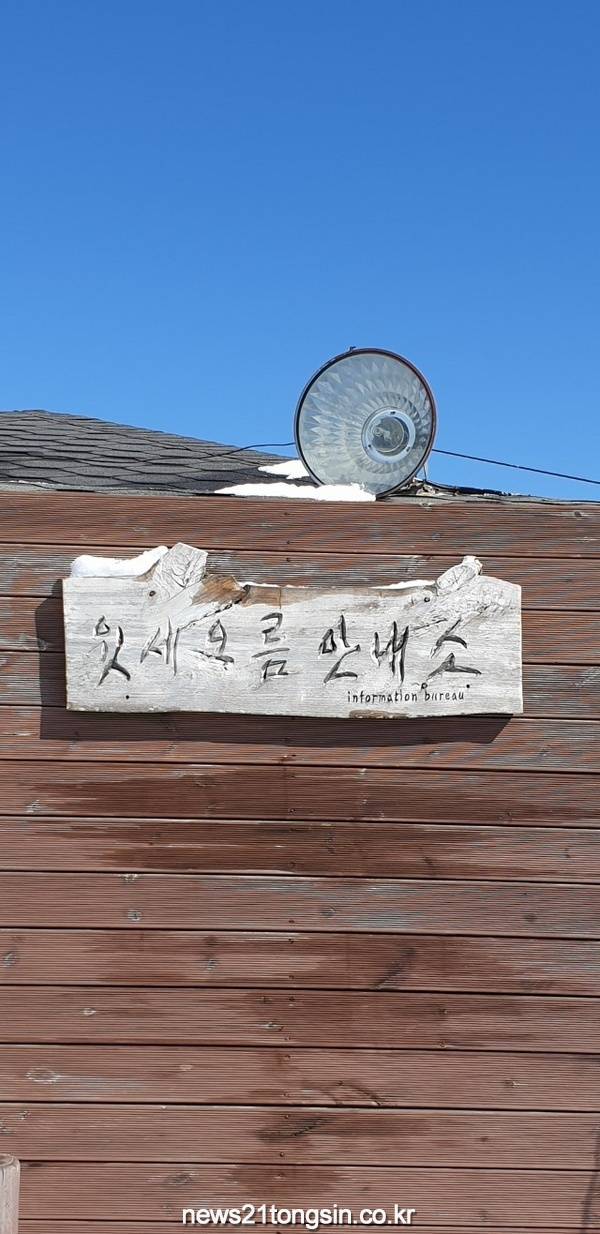 윗세오름 안내소
information bureau
news21tongsin.co.kr